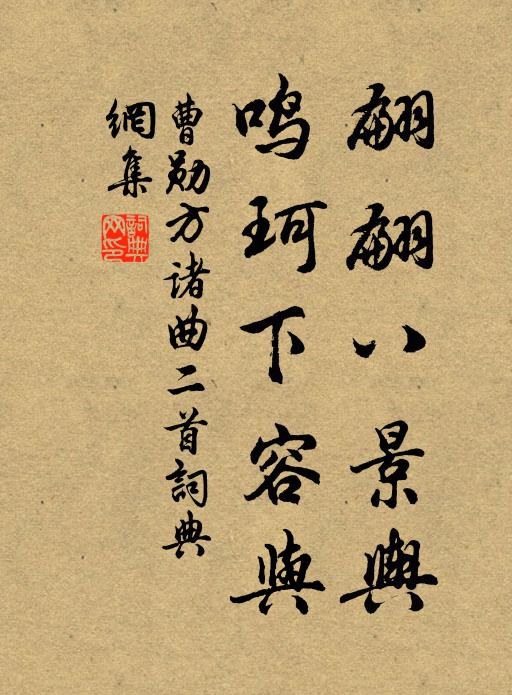 翩翩八景輿
鸣珂下容與
曹勋方诸曲二首詞典
網集
詞典
网印